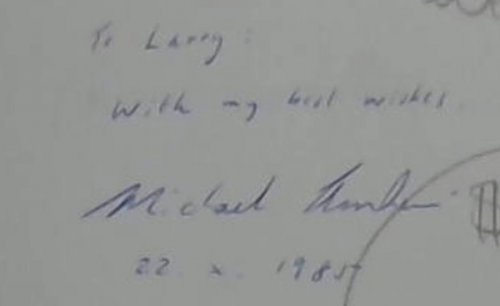 To Larry:
With my best wishes.
Michael
22. x. 1985